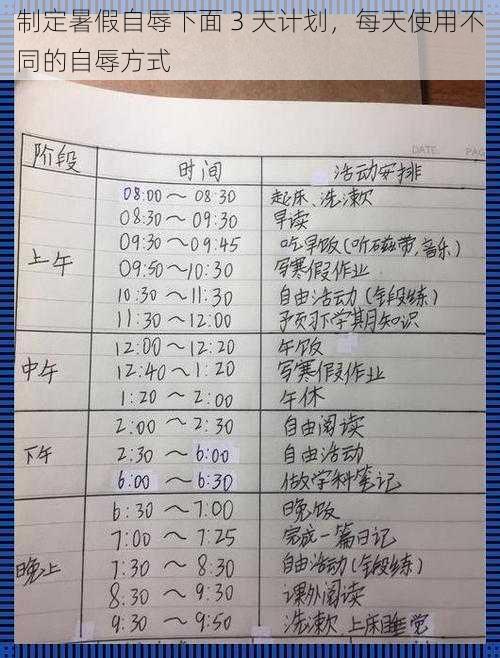 制定暑假自辱下面 3 天计划，每天使用不
同的自辱方式
DATE PAG
阶段 时间 活动安排
上午 08:00～08:30 起床、洗漱
08:30～09:30 早读
09:30～09:45 吃早饭(听磁带,音乐)
09:50～10:30 写寒假作业
10:30～11:30 自由活动(锻练)
11:30～12:00 预习下学期知识
中午 12:00～12:20 午饭
12:40～1:20 写寒假作业
1:20～2:00 午休
下午 2:00～2:30 自由阅读
2:30～6:00 自由活动
6:00～6:30 做学科笔记
晚上 6:30～7:00 晚饭
7:00～7:25 完成一篇日记
7:30～8:30 自由活动(锻练)
8:30～9:30 课外阅读
9:30～9:50 洗漱 上床睡觉